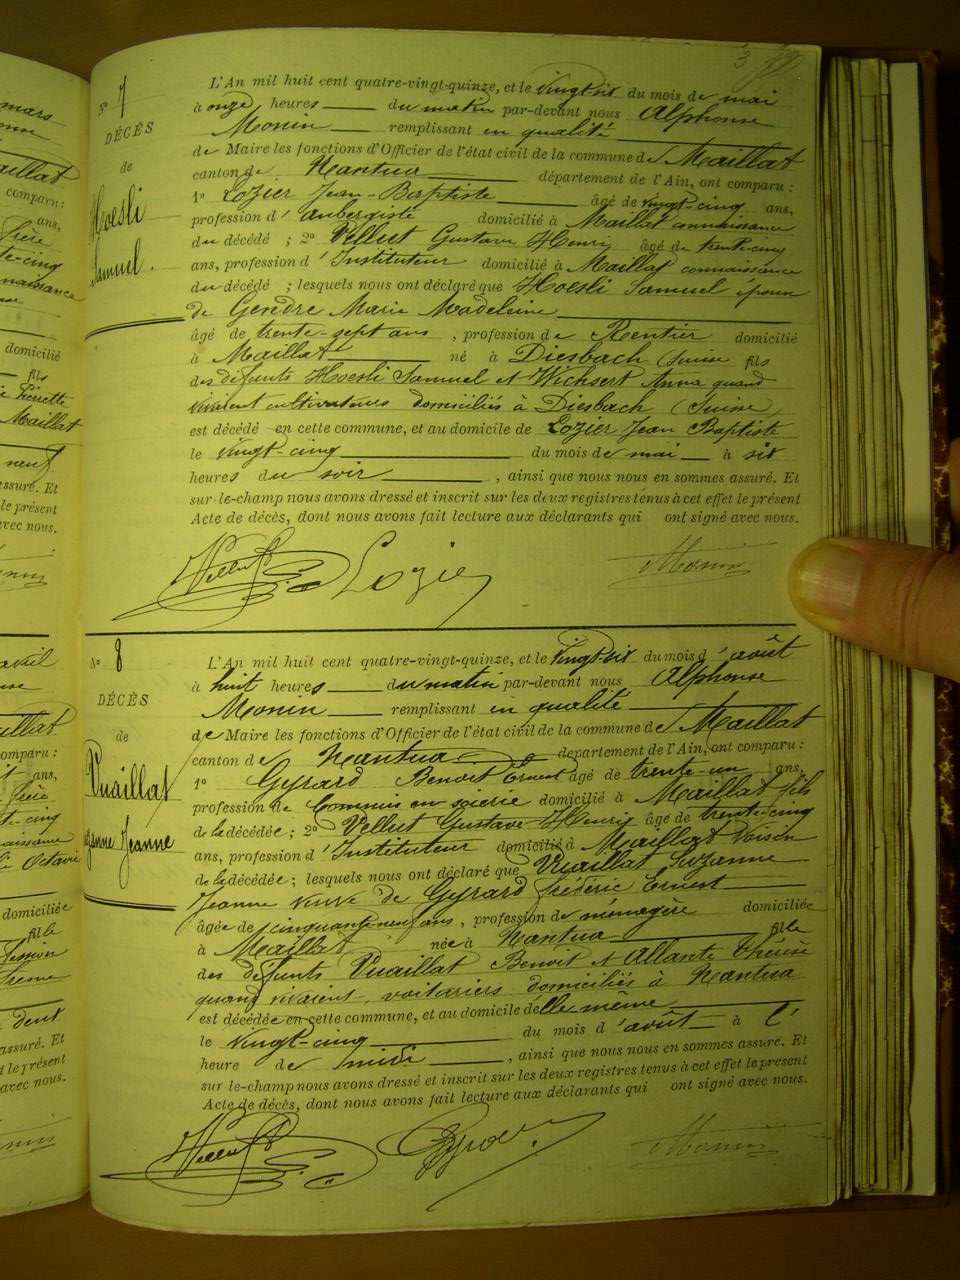 3
N° 7
DÉCÈS
de
Hoesli
Samuel.
L'An mil huit cent quatre-vingt-quinze, et le vingt-six du mois de mai
à onze heures du matin par-devant nous Alphonse
Monin remplissant en qualité
de Maire les fonctions d'Officier de l'état civil de la commune de Maillat
canton de Nantua département de l'Ain, ont comparu :
1° Lozier Jean-Baptiste âgé de vingt-cinq ans,
profession d'aubergiste domicilié à Maillat connaissance
du décédé ; 2° Vellut Gustave Henri âgé de trente-cinq
ans, profession d'Instituteur domicilié à Maillat connaissance
du décédé ; lesquels nous ont déclaré que Hoesli Samuel époux
de Gendre Marie Madeleine
âgé de trente-sept ans, profession de Rentier domicilié
à Maillat né à Diesbach (Suisse) fils
des défunts Hoesli Samuel et Wichsert Anna quand
vivaient cultivateurs domiciliés à Diesbach (Suisse)
est décédé en cette commune, et au domicile de Lozier Jean Baptiste
le vingt-cinq du mois de mai à six
heures du soir, ainsi que nous nous en sommes assuré. Et
sur-le-champ nous avons dressé et inscrit sur les deux registres tenus à cet effet le présent
Acte de décès, dont nous avons fait lecture aux déclarants qui ont signé avec nous.
Vellut Lozier Monin
N° 8
DÉCÈS
de
Vuaillat
Jeanne
L'An mil huit cent quatre-vingt-quinze, et le vingt-six du mois d'août
à huit heures du matin par-devant nous Alphonse
Monin remplissant en qualité
de Maire les fonctions d'Officier de l'état civil de la commune de Maillat
canton de Nantua département de l'Ain, ont comparu :
1° Gyrard Benoit Ernest âgé de trente-un ans,
profession de Commis en soierie domicilié à Maillat fils
de la décédée ; 2° Vellut Gustave Henri âgé de trente-cinq
ans, profession d'Instituteur domicilié à Maillat voisin
de la décédée ; lesquels nous ont déclaré que Vuaillat Suzanne
Jeanne veuve de Gyrard Frédéric Ernest
âgée de cinquante-neuf ans, profession de ménagère domiciliée
à Maillat, née à Nantua fille
des défunts Vuaillat Benoit et Allante Thérèse
quand vivaient, voituriers domiciliés à Nantua
est décédée en cette commune, et au domicile d'elle-même
le vingt-cinq du mois d'août à l'
heure de midi, ainsi que nous nous en sommes assuré. Et
sur le-champ nous avons dressé et inscrit sur les deux registres tenus à cet effet le présent
Acte de décès, dont nous avons fait lecture aux déclarants qui ont signé avec nous.
Vellut Gyrard Monin